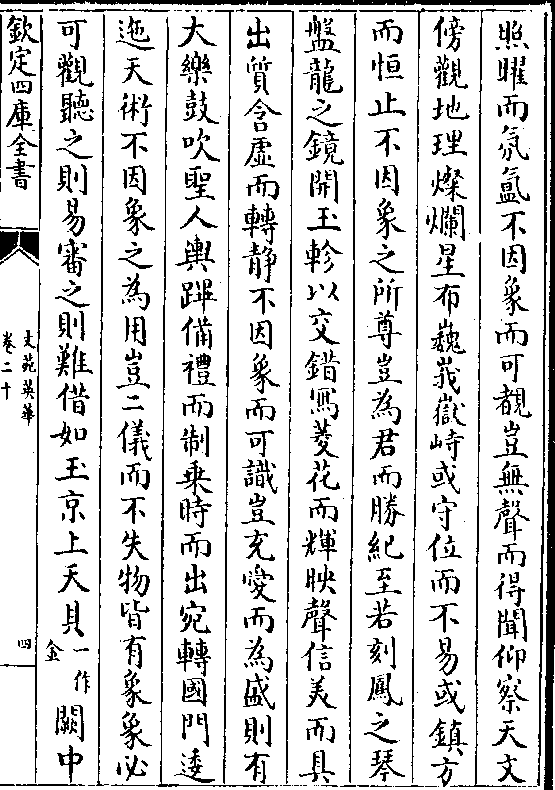 照曜而氛氲不因象而可覩豈無聲而得聞仰察天文
傍觀地理燦爛星布巍峩嶽峙或守位而不易或鎮方
而恒止不因象之所尊豈為君而勝紀至若刻鳳之琴
盤龍之鏡開玉軫以交錯寫菱花而輝映聲信美而具
出質含虛而轉靜不因象而可識豈充愛而為盛則有
大樂鼓吹聖人輿蹕備禮而制乘時而出宛轉國門逶
迤天術不因象之為用豈二儀而不失物皆有象象必
可觀聽之則易審之則難借如玉京上天貝一作金闕中
欽定四庫全書
文苑英華
卷二十
四